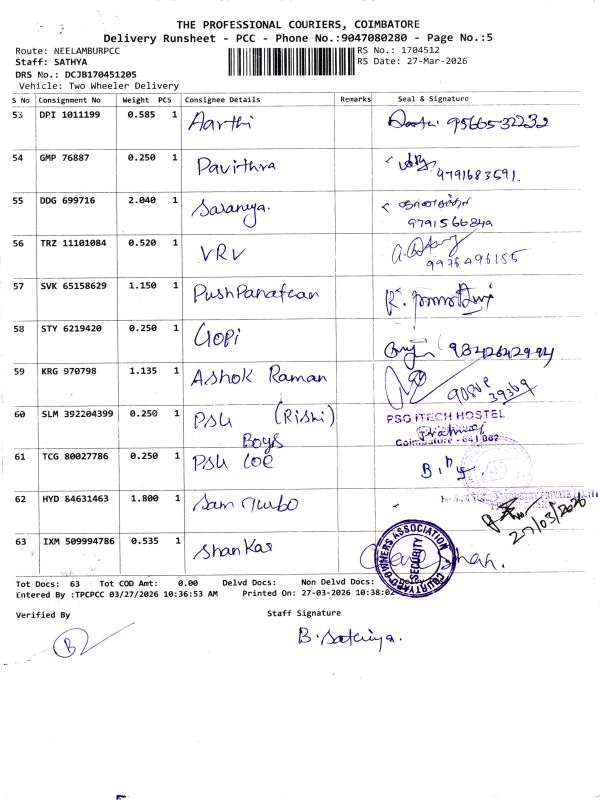 THE PROFESSIONAL COURIERS, COIMBATORE
Delivery Runsheet - PCC - Phone No.:9047080280 - Page No.:5
Route: NEELAMBURPCC
RS No.: 1704512
Staff: SATHYA
RS Date: 27-Mar-2026
DRS No.: DCJB170451205
Vehicle: Two Wheeler Delivery
S No Consignment No Weight PCS Consignee Details Remarks Seal & Signature
53 DPI 1011199 0.585 1 Aarthi 9566532232
54 GMP 76887 0.250 1 Pavithra
9791683591.
55 DDG 699716 2.040 1 Saraniya.
56 TRZ 11101084 0.520 1 VRV
9976496155
57 SVK 65158629 1.150 1 Pushpanathan
58 STY 6219420 0.250 1 Gopi
59 KRG 970798 1.135 1 Ashok Raman
60 SLM 392204399 0.250 1 PSG (Rishi) PSG ITECH HOSTEL
Boys Coimbatore - 641 062
61 TCG 80027786 0.250 1 PSG COE
62 HYD 84631463 1.800 1 Sam Turbo
27/03/2026
63 IXM 509994786 0.535 1 Shankar
COURTYARD OWNERS ASSOCIATION
SECURITY
Tot Docs: 63 Tot COD Amt: 0.00 Delvd Docs: Non Delvd Docs:
Entered By :TPCPCC 03/27/2026 10:36:53 AM Printed On: 27-03-2026 10:38:02
Verified By Staff Signature
B. Sathiya.